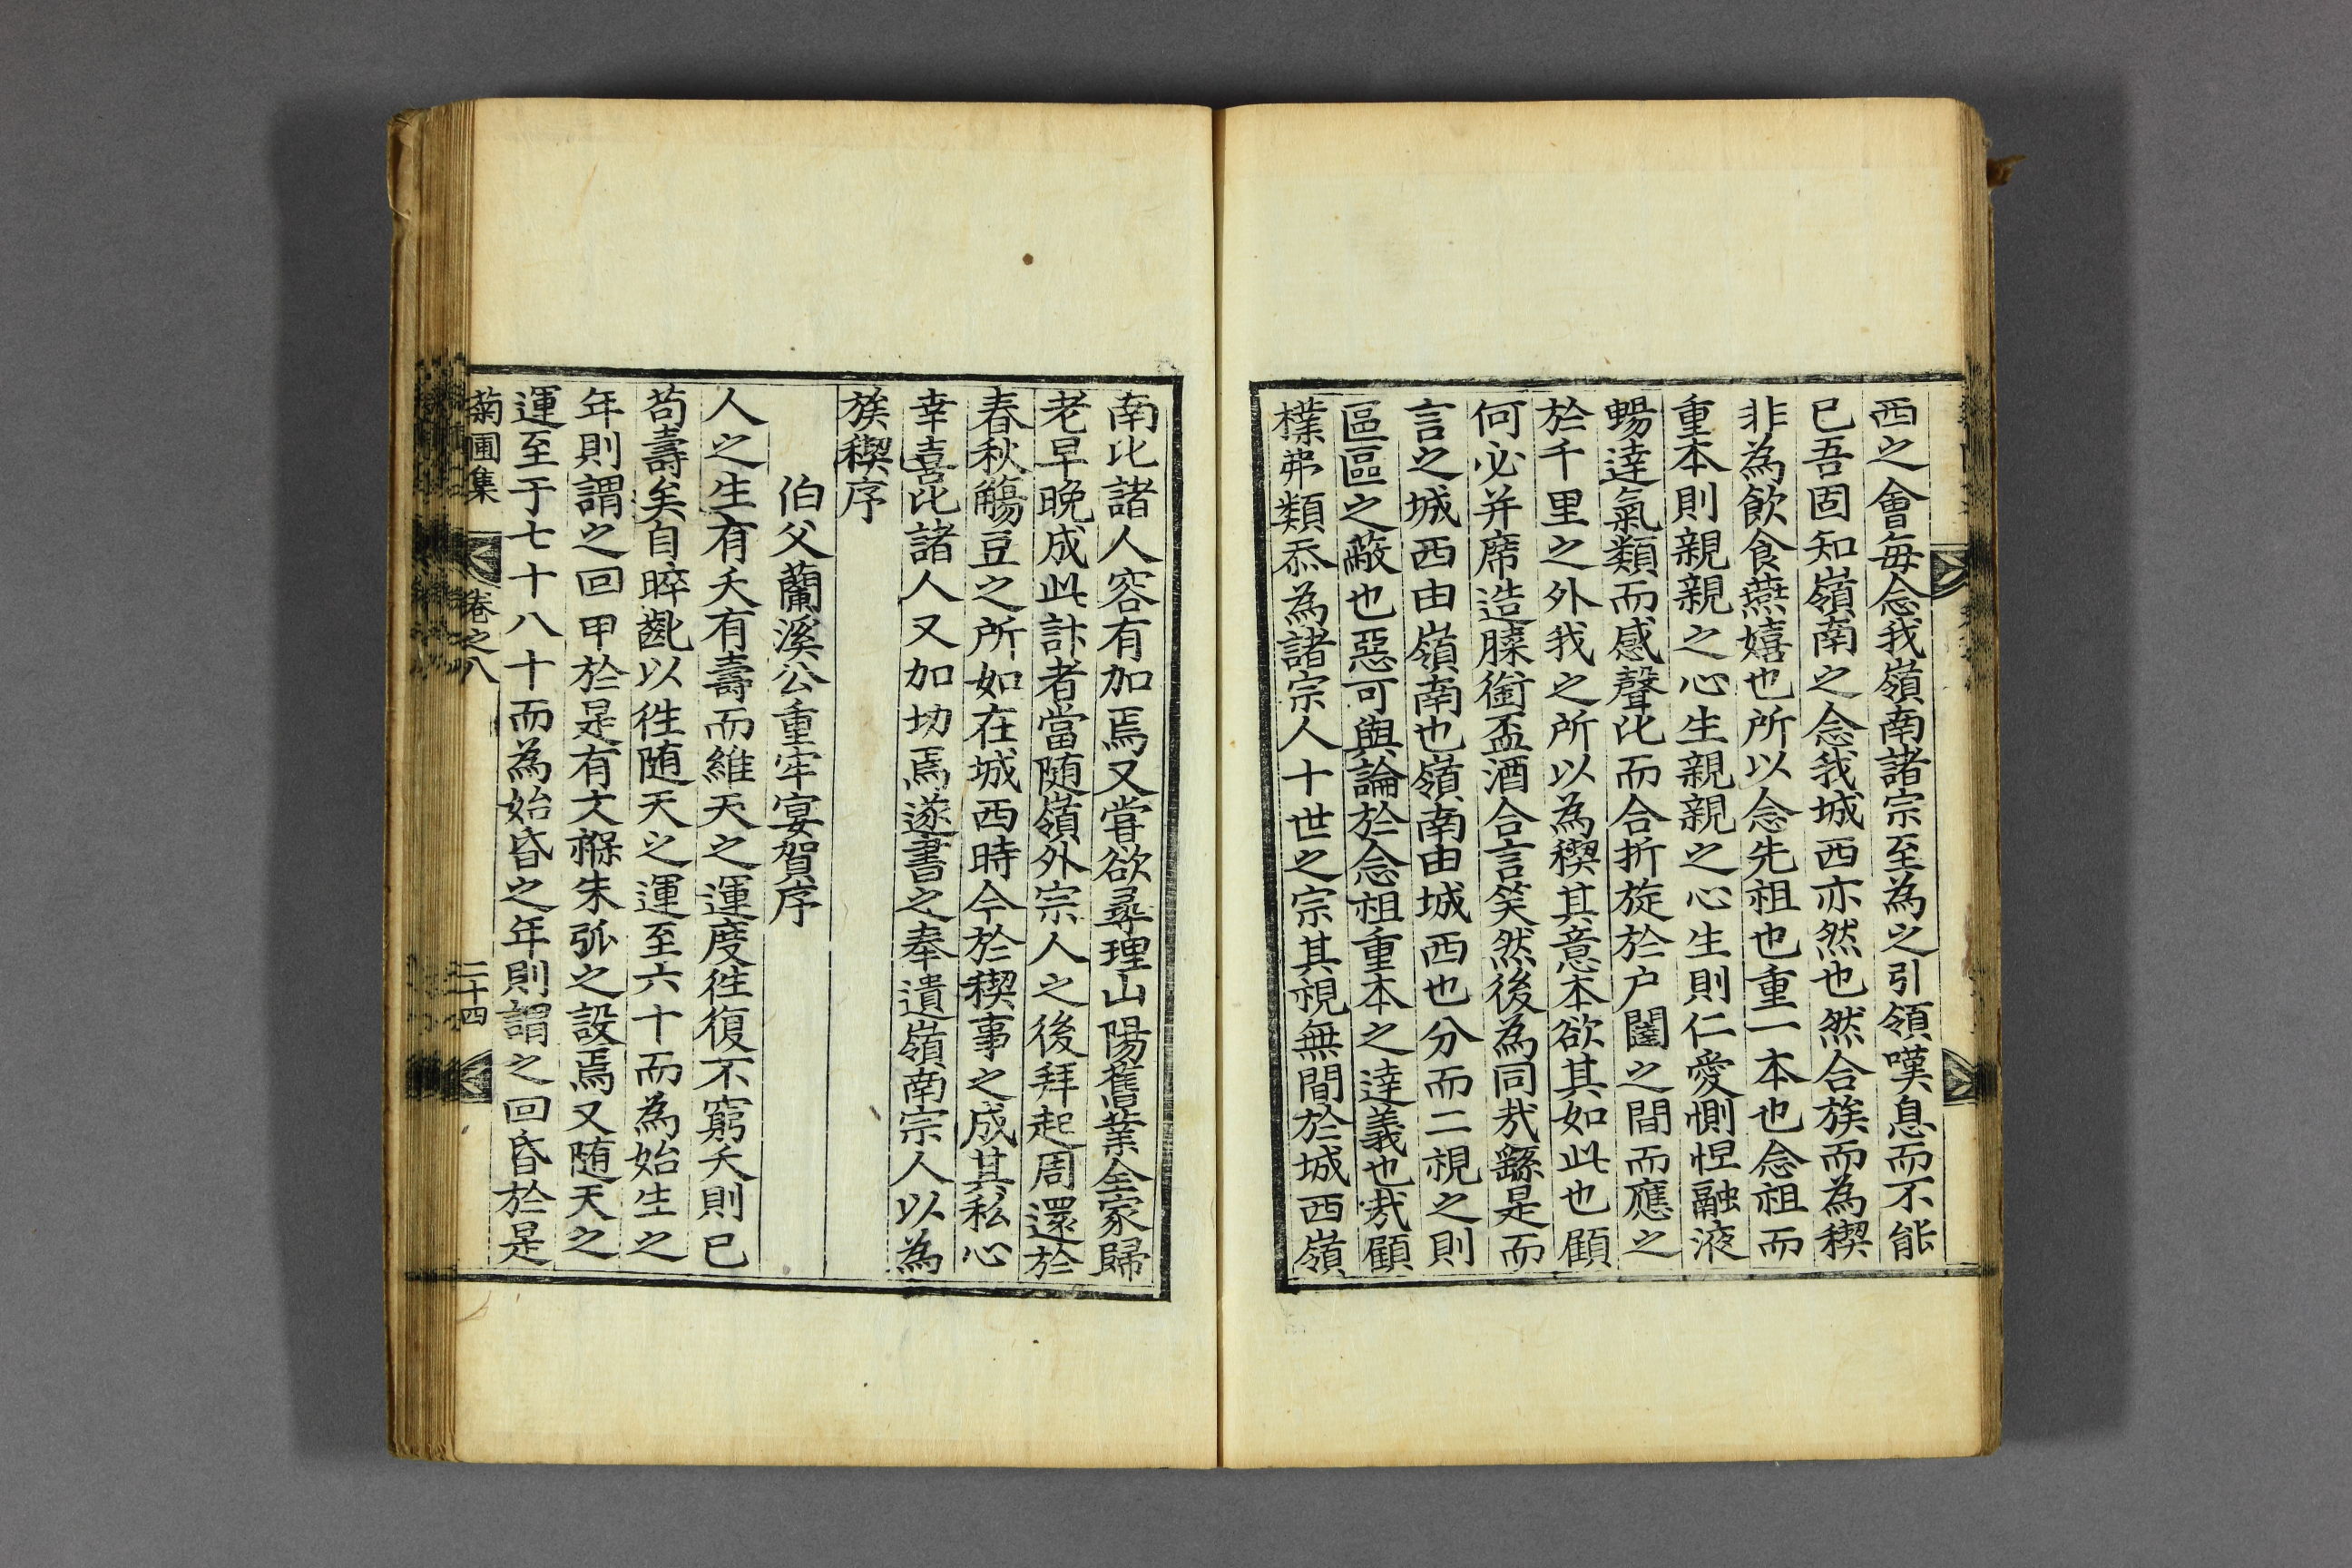 西之會每念我嶺南諸宗至為之引領嘆息而不能
已吾固知嶺南之念我城西亦然也然合族而為稧
非為飮食燕嬉也所以念先祖也重一本也念祖而
重本則親親之心生親親之心生則仁愛惻怛融液
暢達氣類而感聲比而合折旋於户闥之間而應之
於千里之外我之所以為稧其意本欲其如此也顧
何必并席造膝銜盃酒合言笑然後為同㢤繇是而
言之城西由嶺南也嶺南由城西也分而二視之則
區區之蔽也惡可與論於念祖重本之達義也㢤顧
樸弗類忝為諸宗人十世之宗其視無間於城西嶺
南比諸人容有加焉又甞欲尋理山陽舊業全家歸
老早晚成此計者當随嶺外宗人之後拜起周還於
春秋觴豆之所如在城西時今於稧事之成其私心
幸喜比諸人又加切焉遂書之奉遺嶺南宗人以為
族稧序
伯父蘭溪公重牢宴賀序
人之生有夭有壽而維天之運度徃復不窮夭則已
苟壽矣自晬齓以徃随天之運至六十而為始生之
年則謂之回甲於是有文褓朱弧之設焉又随天之
運至于七十八十而為始昏之年則謂之回昏於是
菊圃集 卷之八 二十四